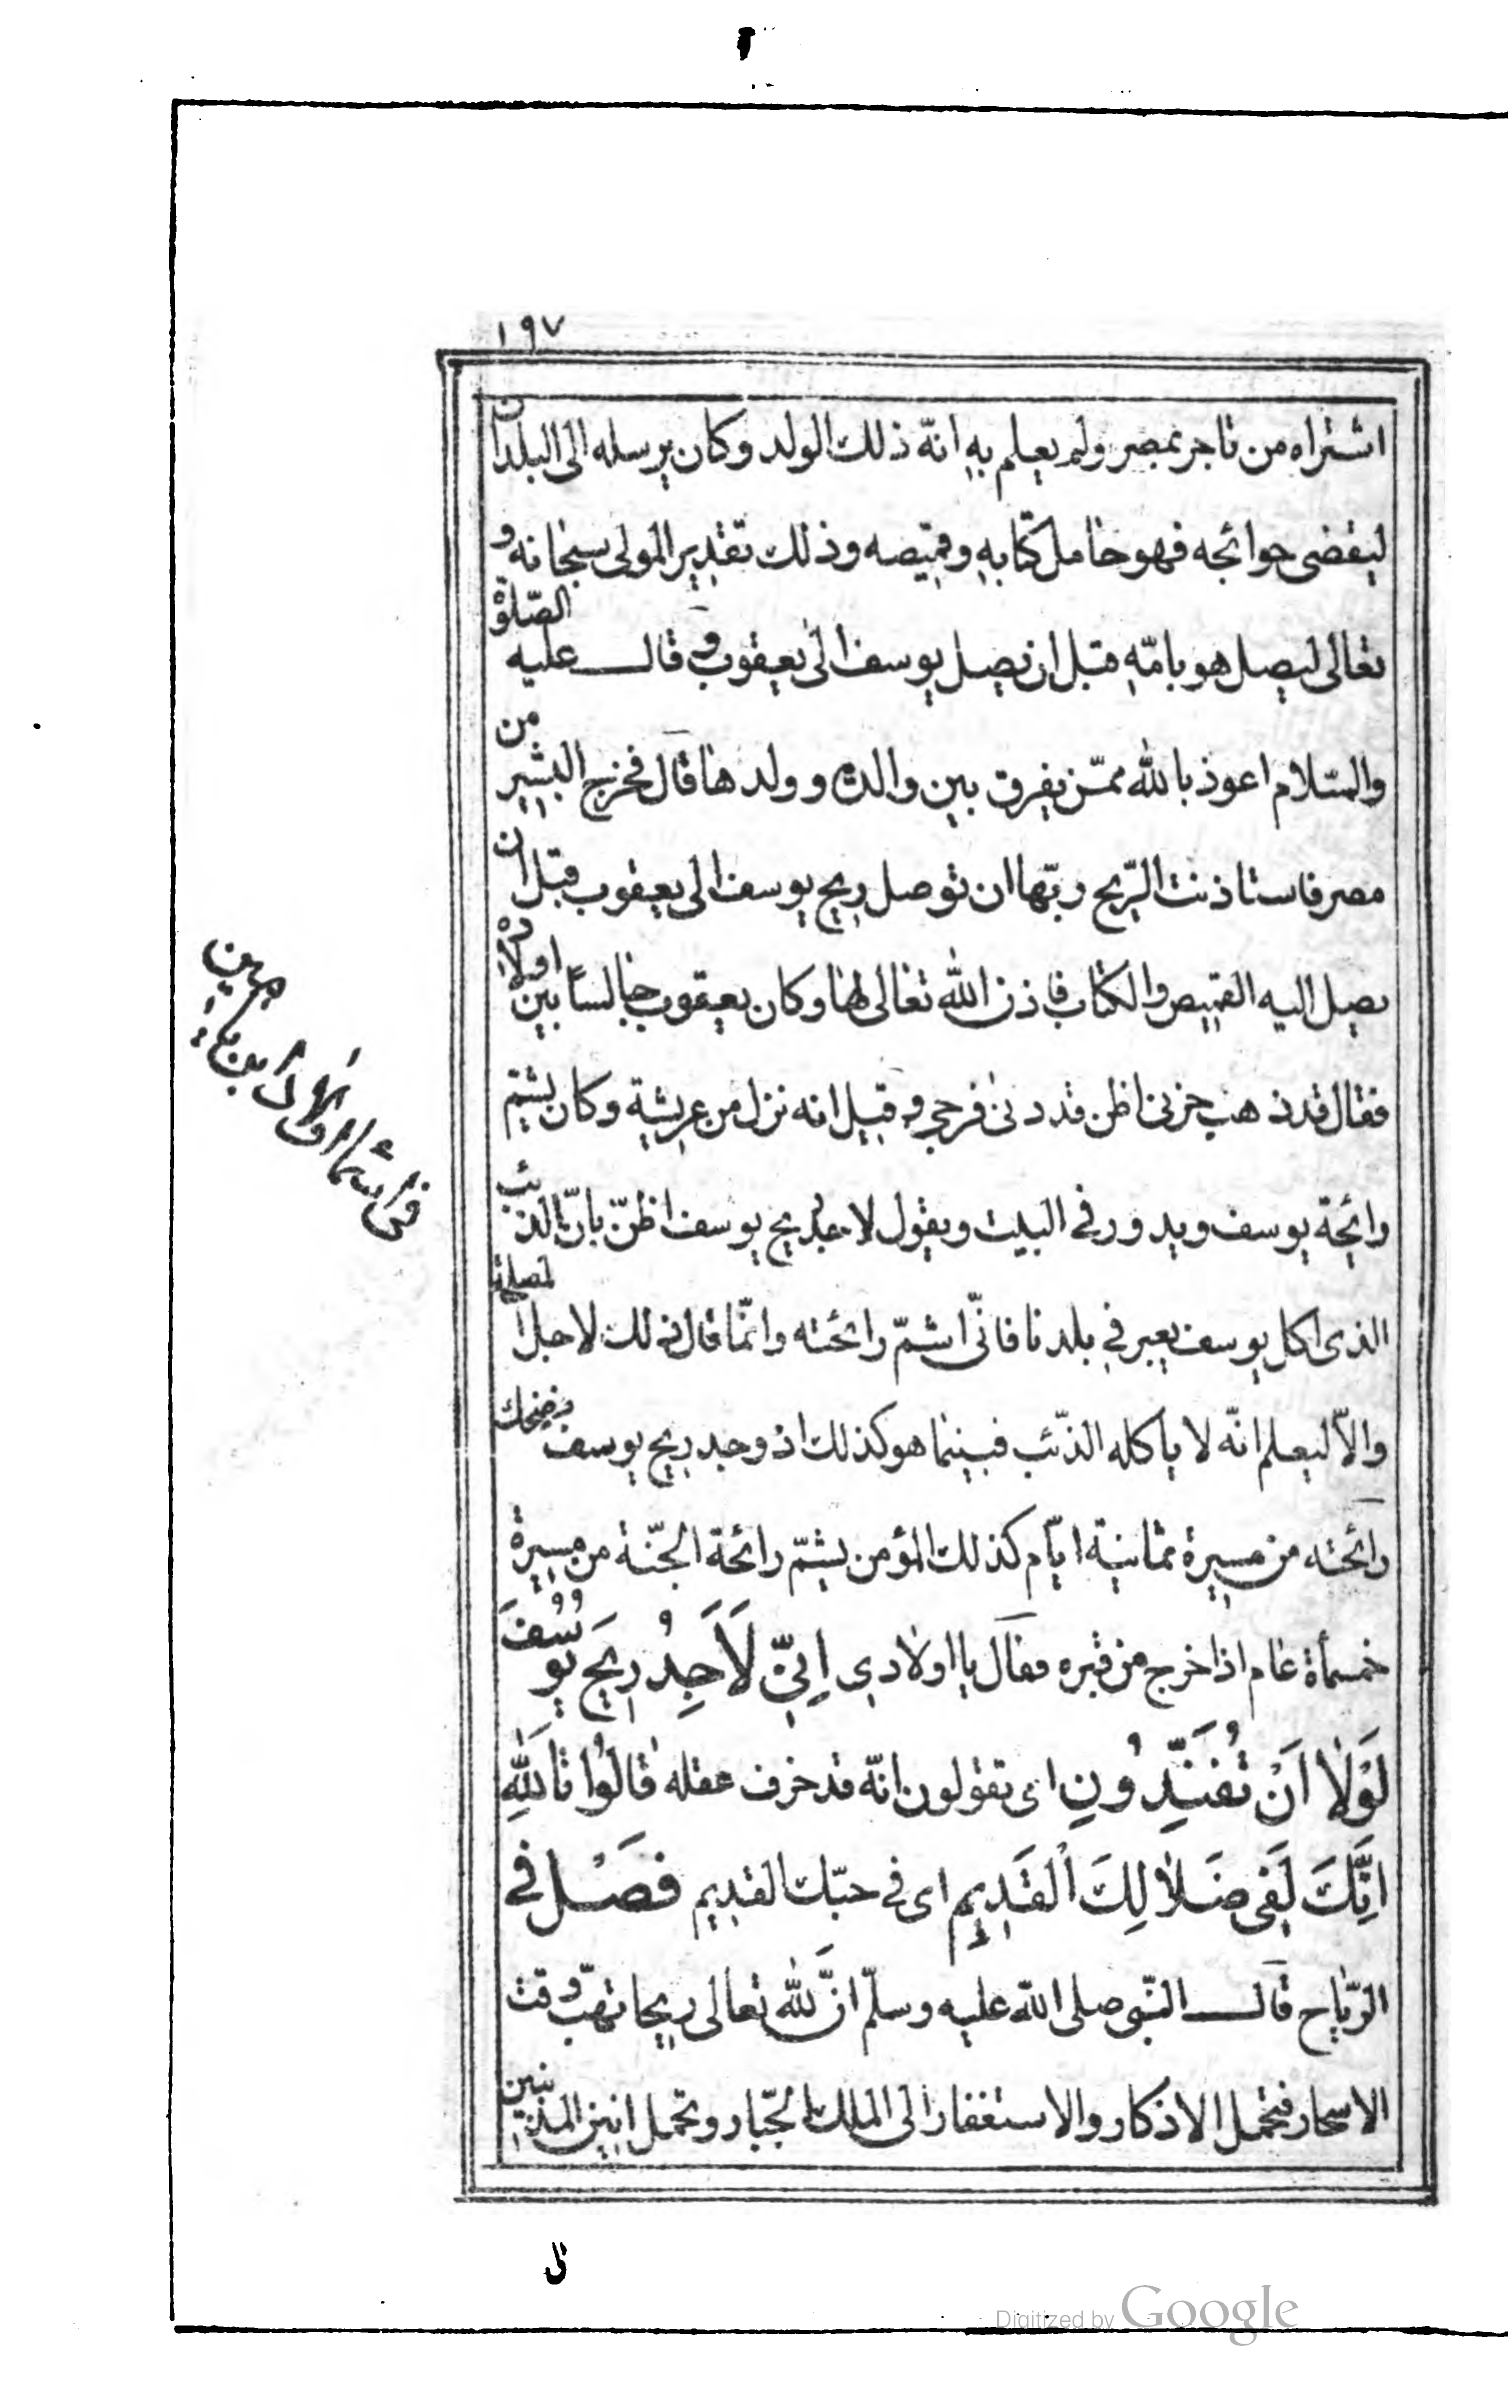 ١٩٧
اشتراه من تاجر بمصر ولم يعلم به انّه ذلك الولد وكان يرسله الى البلدان
ليقضى حوائجه فهو حامل كتابه وقميصه وذلك تقدير المولى سبحانه و
تعالى ليصل هو بامّه قبل ان يصل يوسف الى يعقوب وقال عليه الصّلوة
والسّلام اعوذ بالله ممّن يفرق بين والدة وولدها قال فخرج البشير من
مصر فاستاذنت الرّيح ربّها ان توصل ريح يوسف الى يعقوب قبل ان
يصل اليه القميص والكتاب فاذن الله تعالى لها وكان يعقوب جالسًا بين اولاده
فقال قد ذهب حزنى اظن قد دنى فرجى وقيل انه نزل من عريشة وكان يشتم
رائحة يوسف ويدور فى البيت ويقول لاجد ريح يوسف اظنّ بانّ الذئب
الذى اكل يوسف يعبر فى بلدنا فانّى اشمّ رائحته وانّما قال ذلك لاجل
والّا ليعلم انّه لا ياكله الذّئب فبينما هو كذلك اذ وجد ريح يوسف فضحك
رائحته من مسيرة ثمانية ايّام كذلك المؤمن يشمّ رائحة الجنّة من مسيرة
خمسمأة عام اذا خرج من قبره فقال يا اولادى اِنِّى لَاَجِدُ رِيحَ يُوسُفَ
لَوْلَا اَنْ تُفَنِّدُونِ اى تقولون انّه قد خرف عقله قَالُوا تَاللهِ
اِنَّكَ لَفِى ضَلَالِكَ الْقَدِيمِ اى فى حبّك القديم فَصْل فى
الرّياح قال النّبى صلى الله عليه وسلّم انّ لله تعالى ريحا تهبّ وقت
الاسحار فتحمل الاذكار والاستغفار الى الملك الجبّار وتحمل انين المذنبين
Digitized by Google